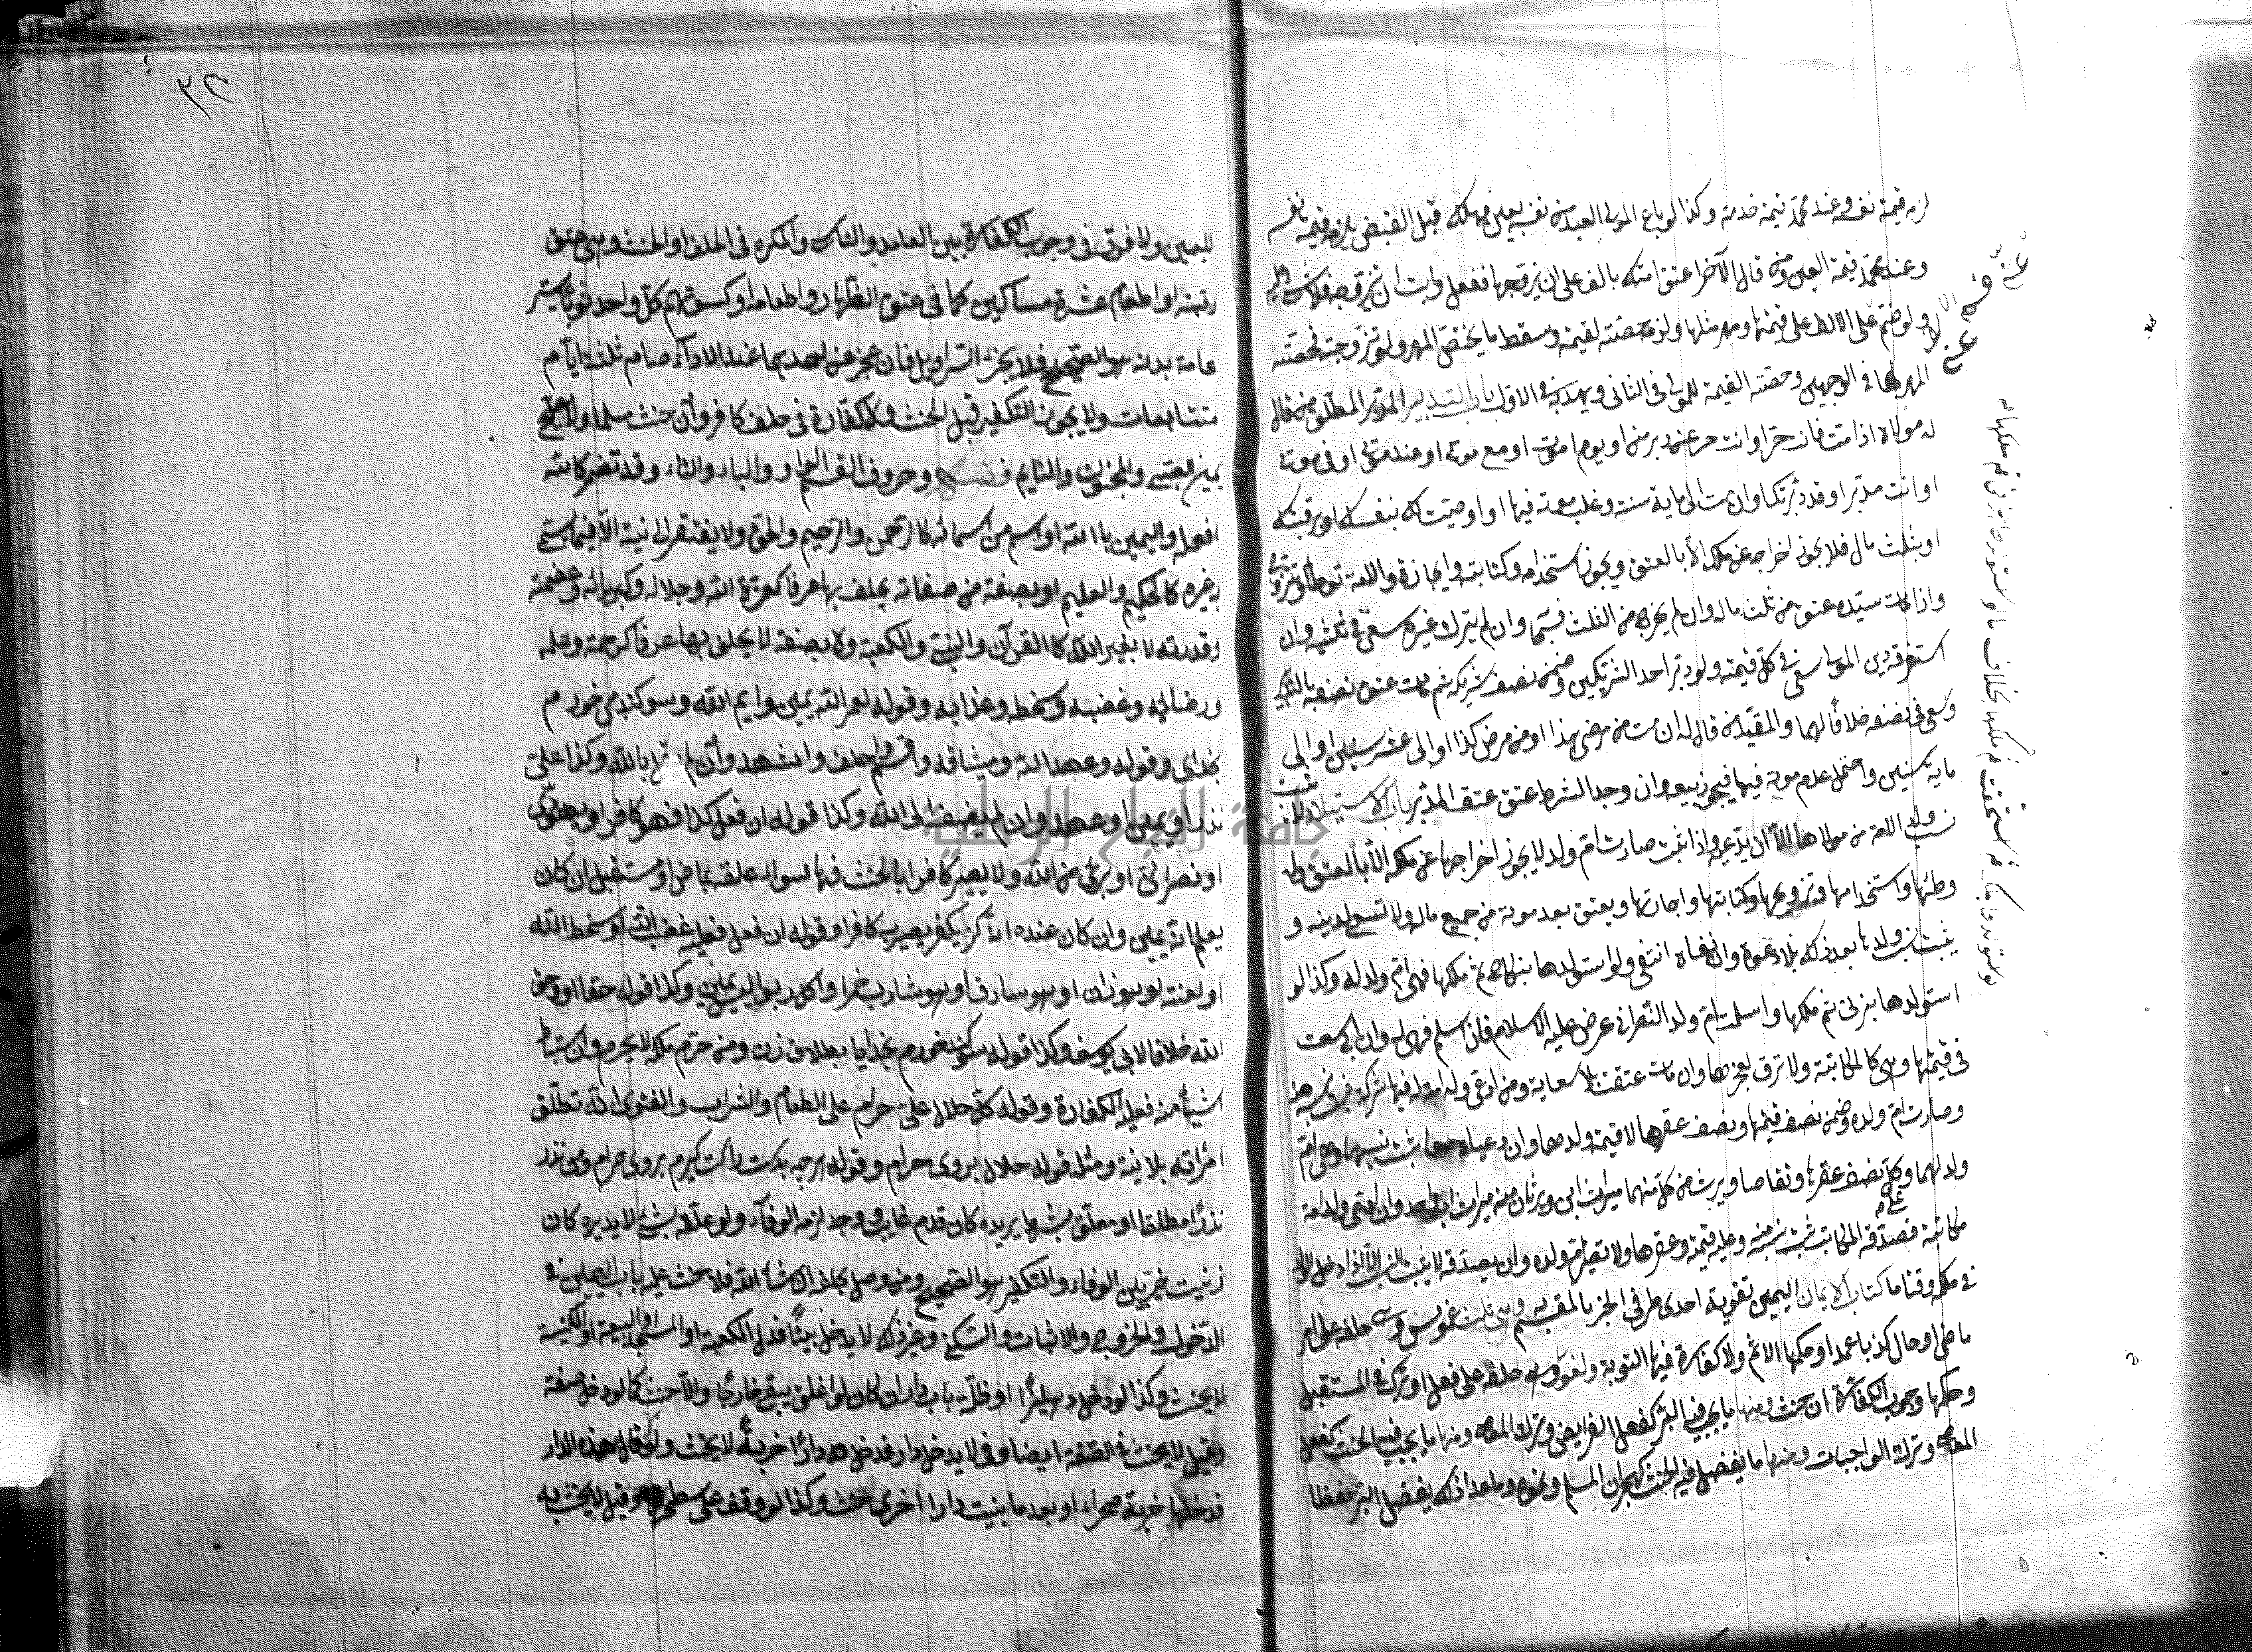 لزمه قيمة نفسه وعند محمد قيمة خدمته وكذا لو باع المولى العبد من نفسه بعين فهلكت قبل القبض يلزمه قيمة نفسه
وعند محمد قيمة العين ومن قال لآخر اعتق امتك بالف على ان تزوجها ففعل وابت ان تزوجه فلا شيء عليه
ولو ضم على الالف على قيمتها ومهر مثلها ولزمه حصته القيمة وسقط ما يخص المهر ولو تزوجته فحصته
المهر لها في الوجهين وحصته القيمة للمولى في الثاني وتهدر في الاول باب التدبير المدبر المطلق من قال
له مولاه اذا مت فانت حر او انت حر عن دبر مني او يوم اموت او مع موتي او عند موتي او في موتي
او انت مدبر او قد دبرتك او ان مت الى ماية سنة وغلب موته فيها او اوصيت لك بنفسك او برقبتك
او بثلث مال فلا يجوز اخراجه عن ملكه الا بالعتق ويجوز استخدامه وكتابته وايجاره والامة توطأ وتزوج
واذا مات سيده عتق من ثلث ماله وان لم يخرج من الثلث فبحسابه وان لم يترك غيره سعى في ثلثيه وان
استغرقه دين المولى سعى في كل قيمته ولو دبر احد الشريكين وضمن نصف شريكه ثم مات عتق نصفه بالتدبير
وسعى في نصفه خلافا لهما والمقيد من قال له ان مت من مرضي هذا او من مرض كذا او الى عشر سنين او الى
ماية سنين واحتمل عدم موته فيها فيجوز بيعه وان وجد الشرط عتق عتق المدبر باب الاستيلاد لا يثبت
نسب ولد الامة من مولاها الا ان يدعيه واذا ثبت صارت ام ولد لا يجوز اخراجها عن ملكه الا بالعتق وله
وطئها واستخدامها وتزويجها وكتابتها واجارتها وتعتق بعد موته من جميع ماله ولا تسعى لدينه و
يثبت نسب ولدها بعد ذلك بلا دعوة وان نفاه انتفى ولو استولدها بنكاح ثم ملكها فهي ام ولد له وكذا لو
استولدها بزنى ثم ملكها ولو اسلمت ام ولد النصراني عرض عليه الاسلام فان اسلم فهي له وان ابى سعت
في قيمتها وهي كالمكاتبة ولا ترق بعجزها وان مات عتقت بلا سعاية ومن ادعى ولد امة له فيها شركة ثبت نسبه منه
وصارت ام ولده وضمن نصف قيمتها ونصف عقرها لا قيمة ولدها وان ادعياه معا ثبت نسبه منهما وهي ام
ولد لهما وعلى كل نصف عقرها وتقاصا ويرث من كل منهما ميراث ابن ويرثان منه ميراث اب واحد وان ادعى ولد امة
مكاتبه فصدقه المكاتب ثبت نسبه منه وعليه قيمته وعقرها ولا تصير ام ولده وان لم يصدقه لا يثبت النسب الا اذا دخل الولد
في ملكه وقتا ما كتاب الايمان اليمين تقوية احدى طرفي الخبر بالمقسم به وهي ثلث غموس وهي حلفه على امر
ماض او حال كذبا عمدا وحكمها الاثم ولا كفارة فيها الا التوبة ولغو وهي حلفه على فعل او ترك في المستقبل
وحكمها وجوب الكفارة ان حنث ومنها ما يجب فيه البر كفعل الفرايض وترك المعاصي ومنها ما يجب فيه الحنث كفعل
المعاصي وترك الواجبات ومنها ما يفضل فيه الحنث كهجران المسلم ونحوه وما عدا ذلك يفضل البر حفظا
٣٢
لليمين ولا فرق في وجوب الكفارة بين العامد والناسي والمكره في الحلف او الحنث وهي عتق
رقبة او اطعام عشرة مساكين كما في عتق الظهار واطعامه او كسوتهم كل واحد ثوبا يستر
عامة بدنه هو الصحيح فلا يجزئ السراويل فان عجز عن احدها عند الاداء صام ثلثة ايام
متتابعات ولا يجوز التكفير قبل الحنث ولا كفارة في حلف كافر وان حنث مسلما ولا يصح
يمين الصبي والمجنون والنايم فصل وحروف القسم الواو والباء والتاء وقد تضمر كالله
افعله واليمين بالله او اسم من اسمائه كالرحمن والرحيم والحق ولا يفتقر الى نية الا فيما يسمى
به غيره كالحكيم والعليم او بصفة من صفاته يحلف بها عرفا كعزة الله وجلاله وكبريائه وعظمته
وقدرته لا بغير الله كالقرآن والنبي والكعبة ولا بصفة لا يحلف بها عرفا كرحمته وعلمه
ورضائه وغضبه وسخطه وعذابه وقوله لعمر الله يمين وايم الله وسوكند مي خورم
بخداى وقوله وعهد الله وميثاقه واقسم واحلف واشهد وان لم يقل بالله وكذا علي
نذر او يمين او عهد وان لم يضف الى الله وكذا قوله ان فعل كذا فهو كافر او يهودي
او نصراني او بريء من الله ولا يصير كافرا بالحنث فيها سواء علقه بماض او مستقبل ان كان
يعلم انه يمين وان كان عنده انه يكفر يصير به كافرا وقوله ان فعل فعليه غضب الله او سخط الله
او لعنته او هو زان او هو سارق او هو شارب خمر او آكل ربوا ليس بيمين وكذا قوله حقا او وحق
الله خلافا لابي يوسف وكذا قوله سوكند خورم بخدايا بطلاق زن ومن حرم ملكه لا يحرم وان استباح
شيئا منه فعليه الكفارة وقوله كل حلال علي حرام على الطعام والشراب والفتوى انه تطلق
امرأته بلا نية ومثله قوله حلال بروى حرام وقوله هرچه بدست راست كيرم بروى حرام ومن نذر
نذرا مطلقا او معلقا بشرط يريده كان قدم غايبي ووجد لزمه الوفاء ولو علقه بشرط لا يريده كان
زنيت خير بين الوفاء والتكفير هو الصحيح ومن وصل بحلفه ان شاء الله فلا حنث عليه باب اليمين في
الدخول والخروج والاتيان والسكنى وغير ذلك لا يدخل بيتا فدخل الكعبة او المسجد او البيعة او الكنيسة
لا يحنث وكذا لو دخل دهليزا او ظلة باب دار ان كان لو اغلق يبقى خارجا والا حنث كما لو دخل صفة
وقيل لا يحنث في الصفة ايضا وفي لا يدخل دارا فدخل دارا خربة لا يحنث ولو قال هذه الدار
فدخلها خربة صحراء او بعد ما بنيت دارا اخرى حنث وكذا لو وقف على سطحها وقيل لا يحنث به
جامعة النجاح الوطنية